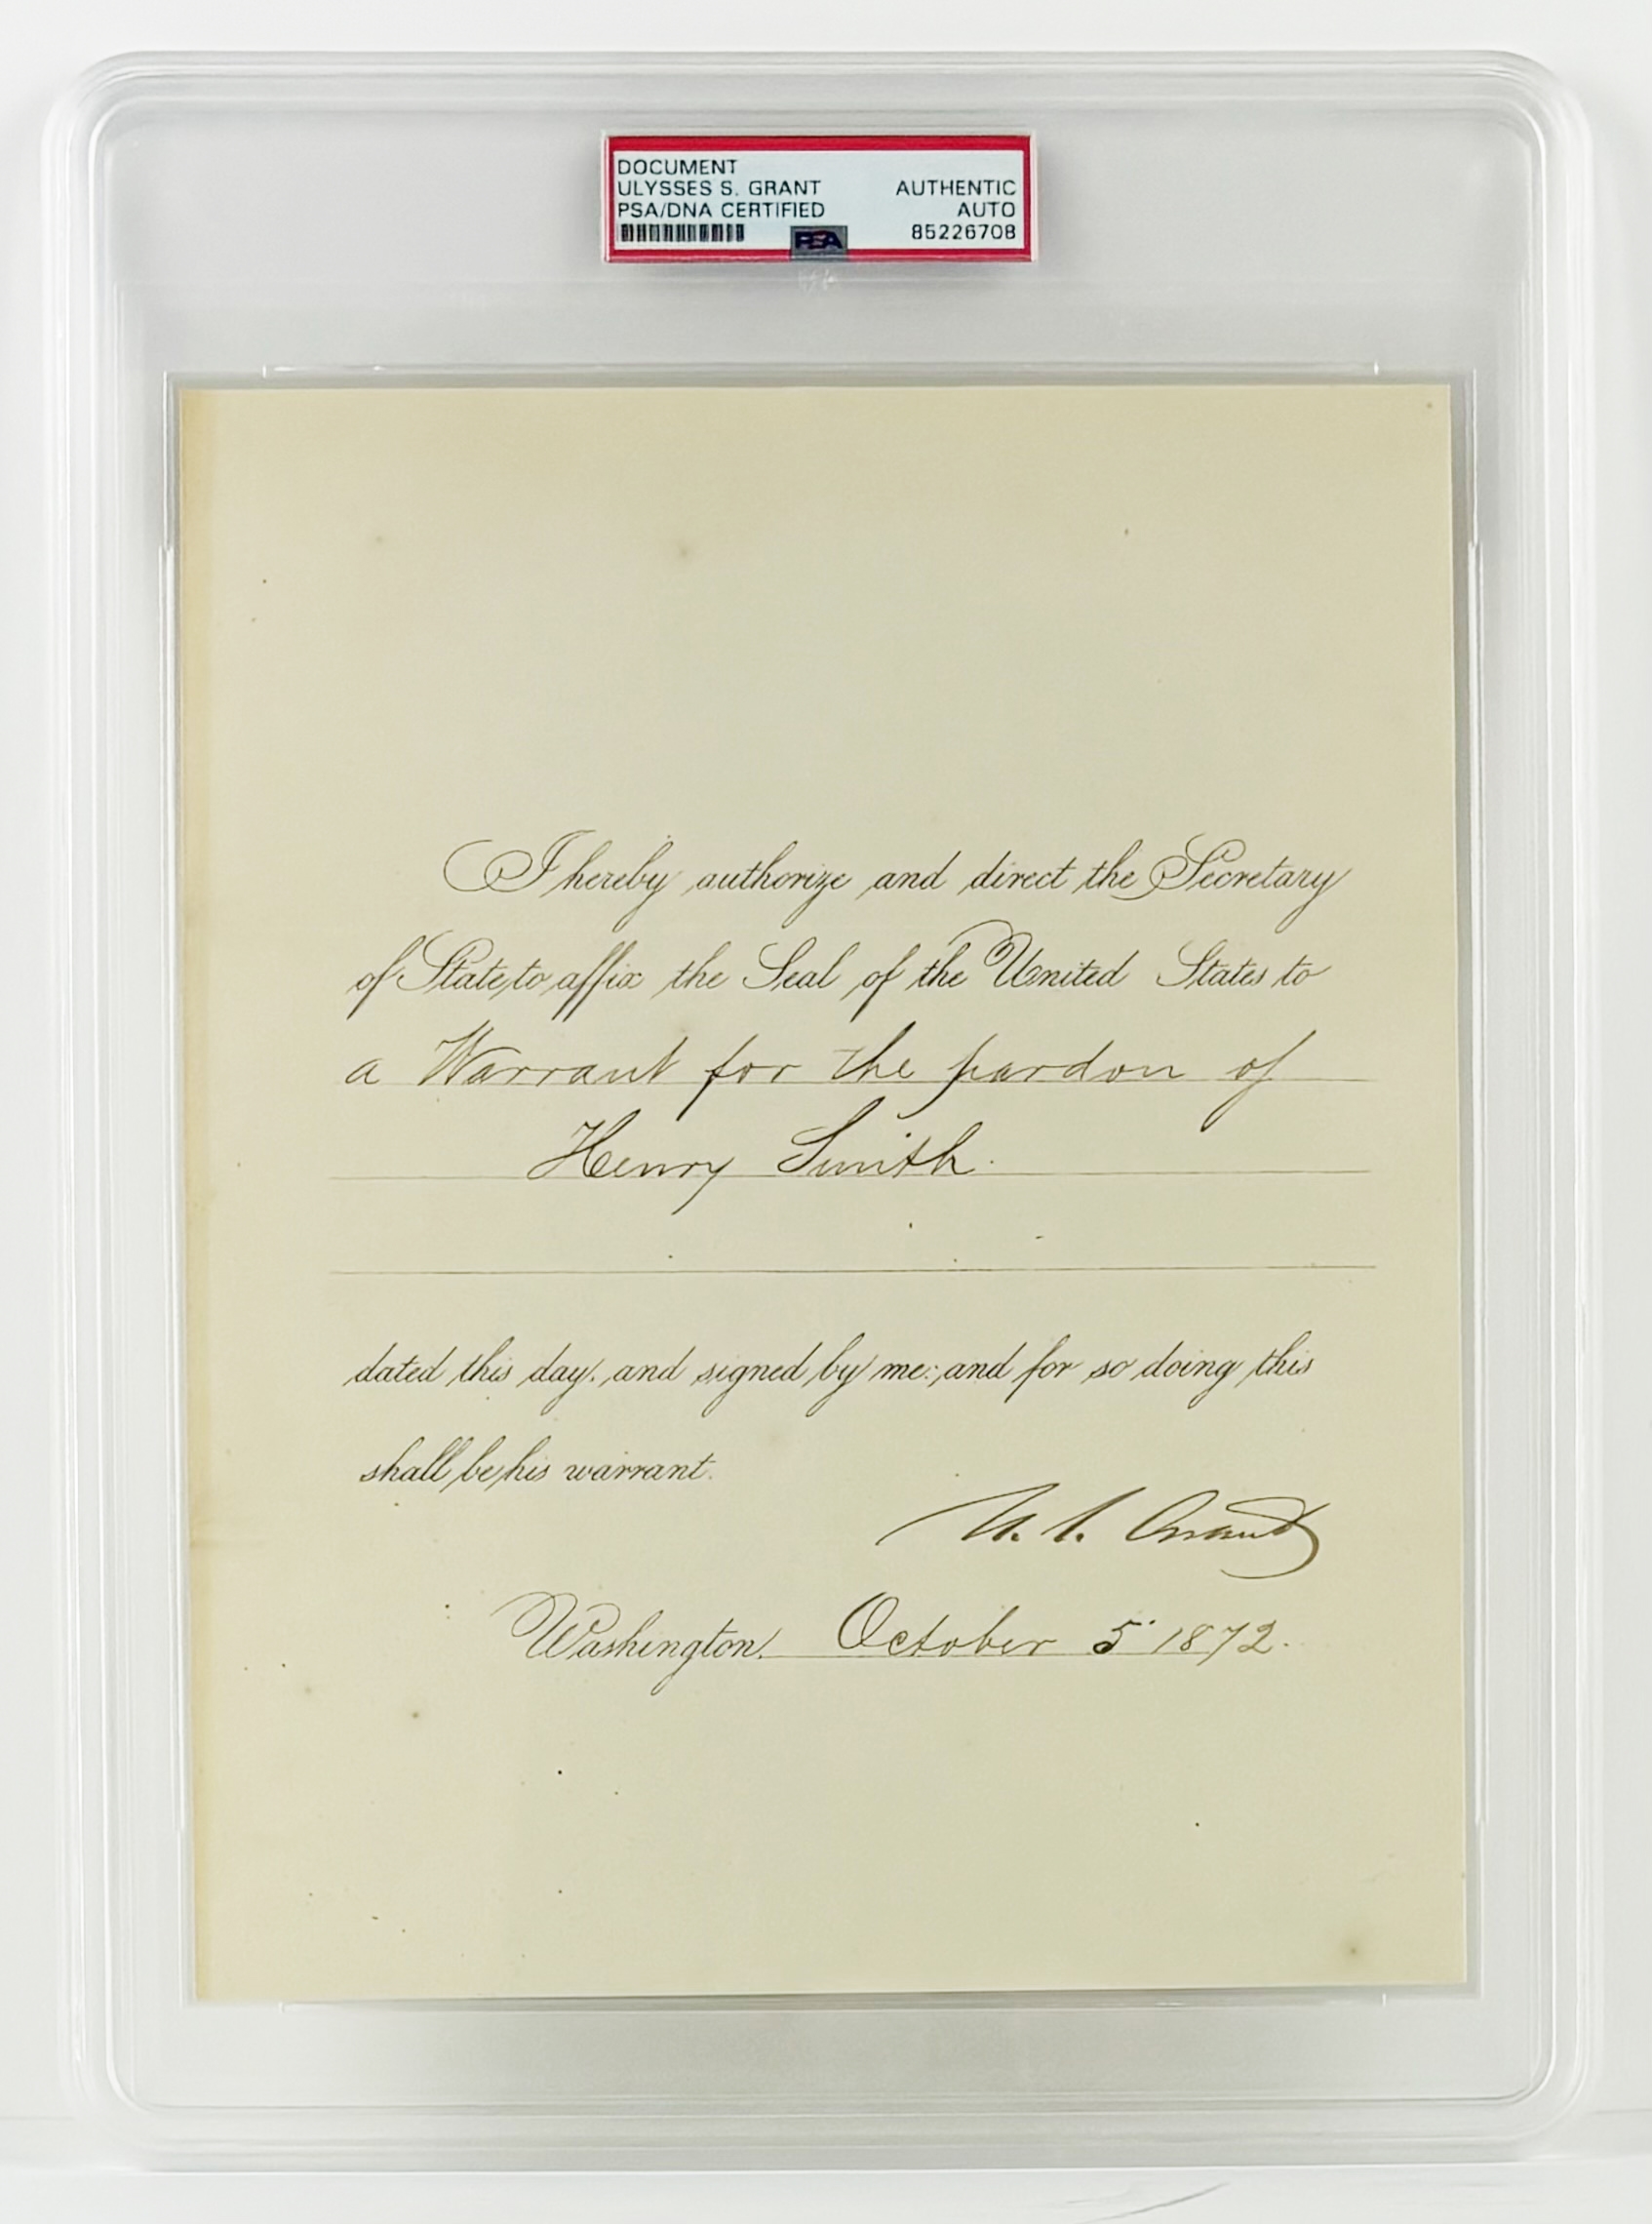 DOCUMENT
ULYSSES S. GRANT AUTHENTIC
PSA/DNA CERTIFIED AUTO
PSA 85226708
I hereby authorize and direct the Secretary
of State to affix the Seal of the United States to
a Warrant for the pardon of
Henry Smith.
dated this day, and signed by me: and for so doing this
shall be his warrant.
U. S. Grant
Washington, October 5 1872.